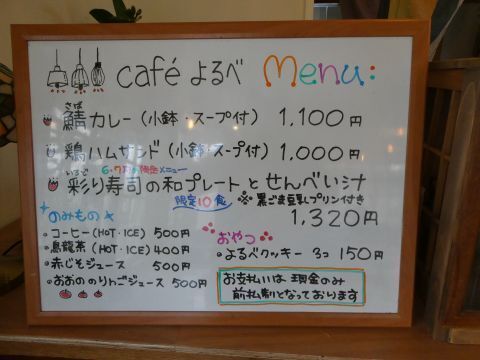 café よるべ Menu:
さば
鯖カレー(小鉢・スープ付) 1,100円
鶏ハムサンド(小鉢・スープ付) 1,000円
6・7月の限定メニュー
いろど
彩り寿司の和プレートとせんべい汁
限定10食 ※黒ごま豆乳プリン付き
1,320円
のみもの
・コーヒー(HOT・ICE) 500円
・烏龍茶(HOT・ICE) 400円
・赤じそジュース 500円
・おおののりんごジュース 500円
おやつ
・よるべクッキー 3コ 150円
お支払いは現金のみ
前払制となっております